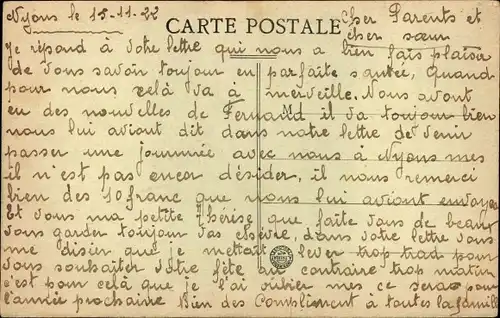 Nyons le 15-11-22
CARTE POSTALE
Cher Parents et
cher sœur
Je répond à votre lettre qui nous a bien fais plaisir
de vous savoir toujour en parfaite santée, quand
pour nous celà va à merveille. Nous avont
eu des nouvelles de Fernand il va toujour bien
nous lui aviont dit dans notre lettre de venir
passer une journnée avec nous à Nyons mes
il n'est pas encor désider, il nous remerci
bien des 10 franc que nous lui aviont envoyer
Et vous ma petite Thérèse que faite vous de beau
vous garder toujour vas chèvre, dans votre lettre vous
me disier que je mettait lever trop tard pour
vous souhaiter vôtre fête au contraire trop matin
c'est pour celà que je l'ai oublier mes ce sera pour
l'année prochaine Bien des Compliment à toutes la famille